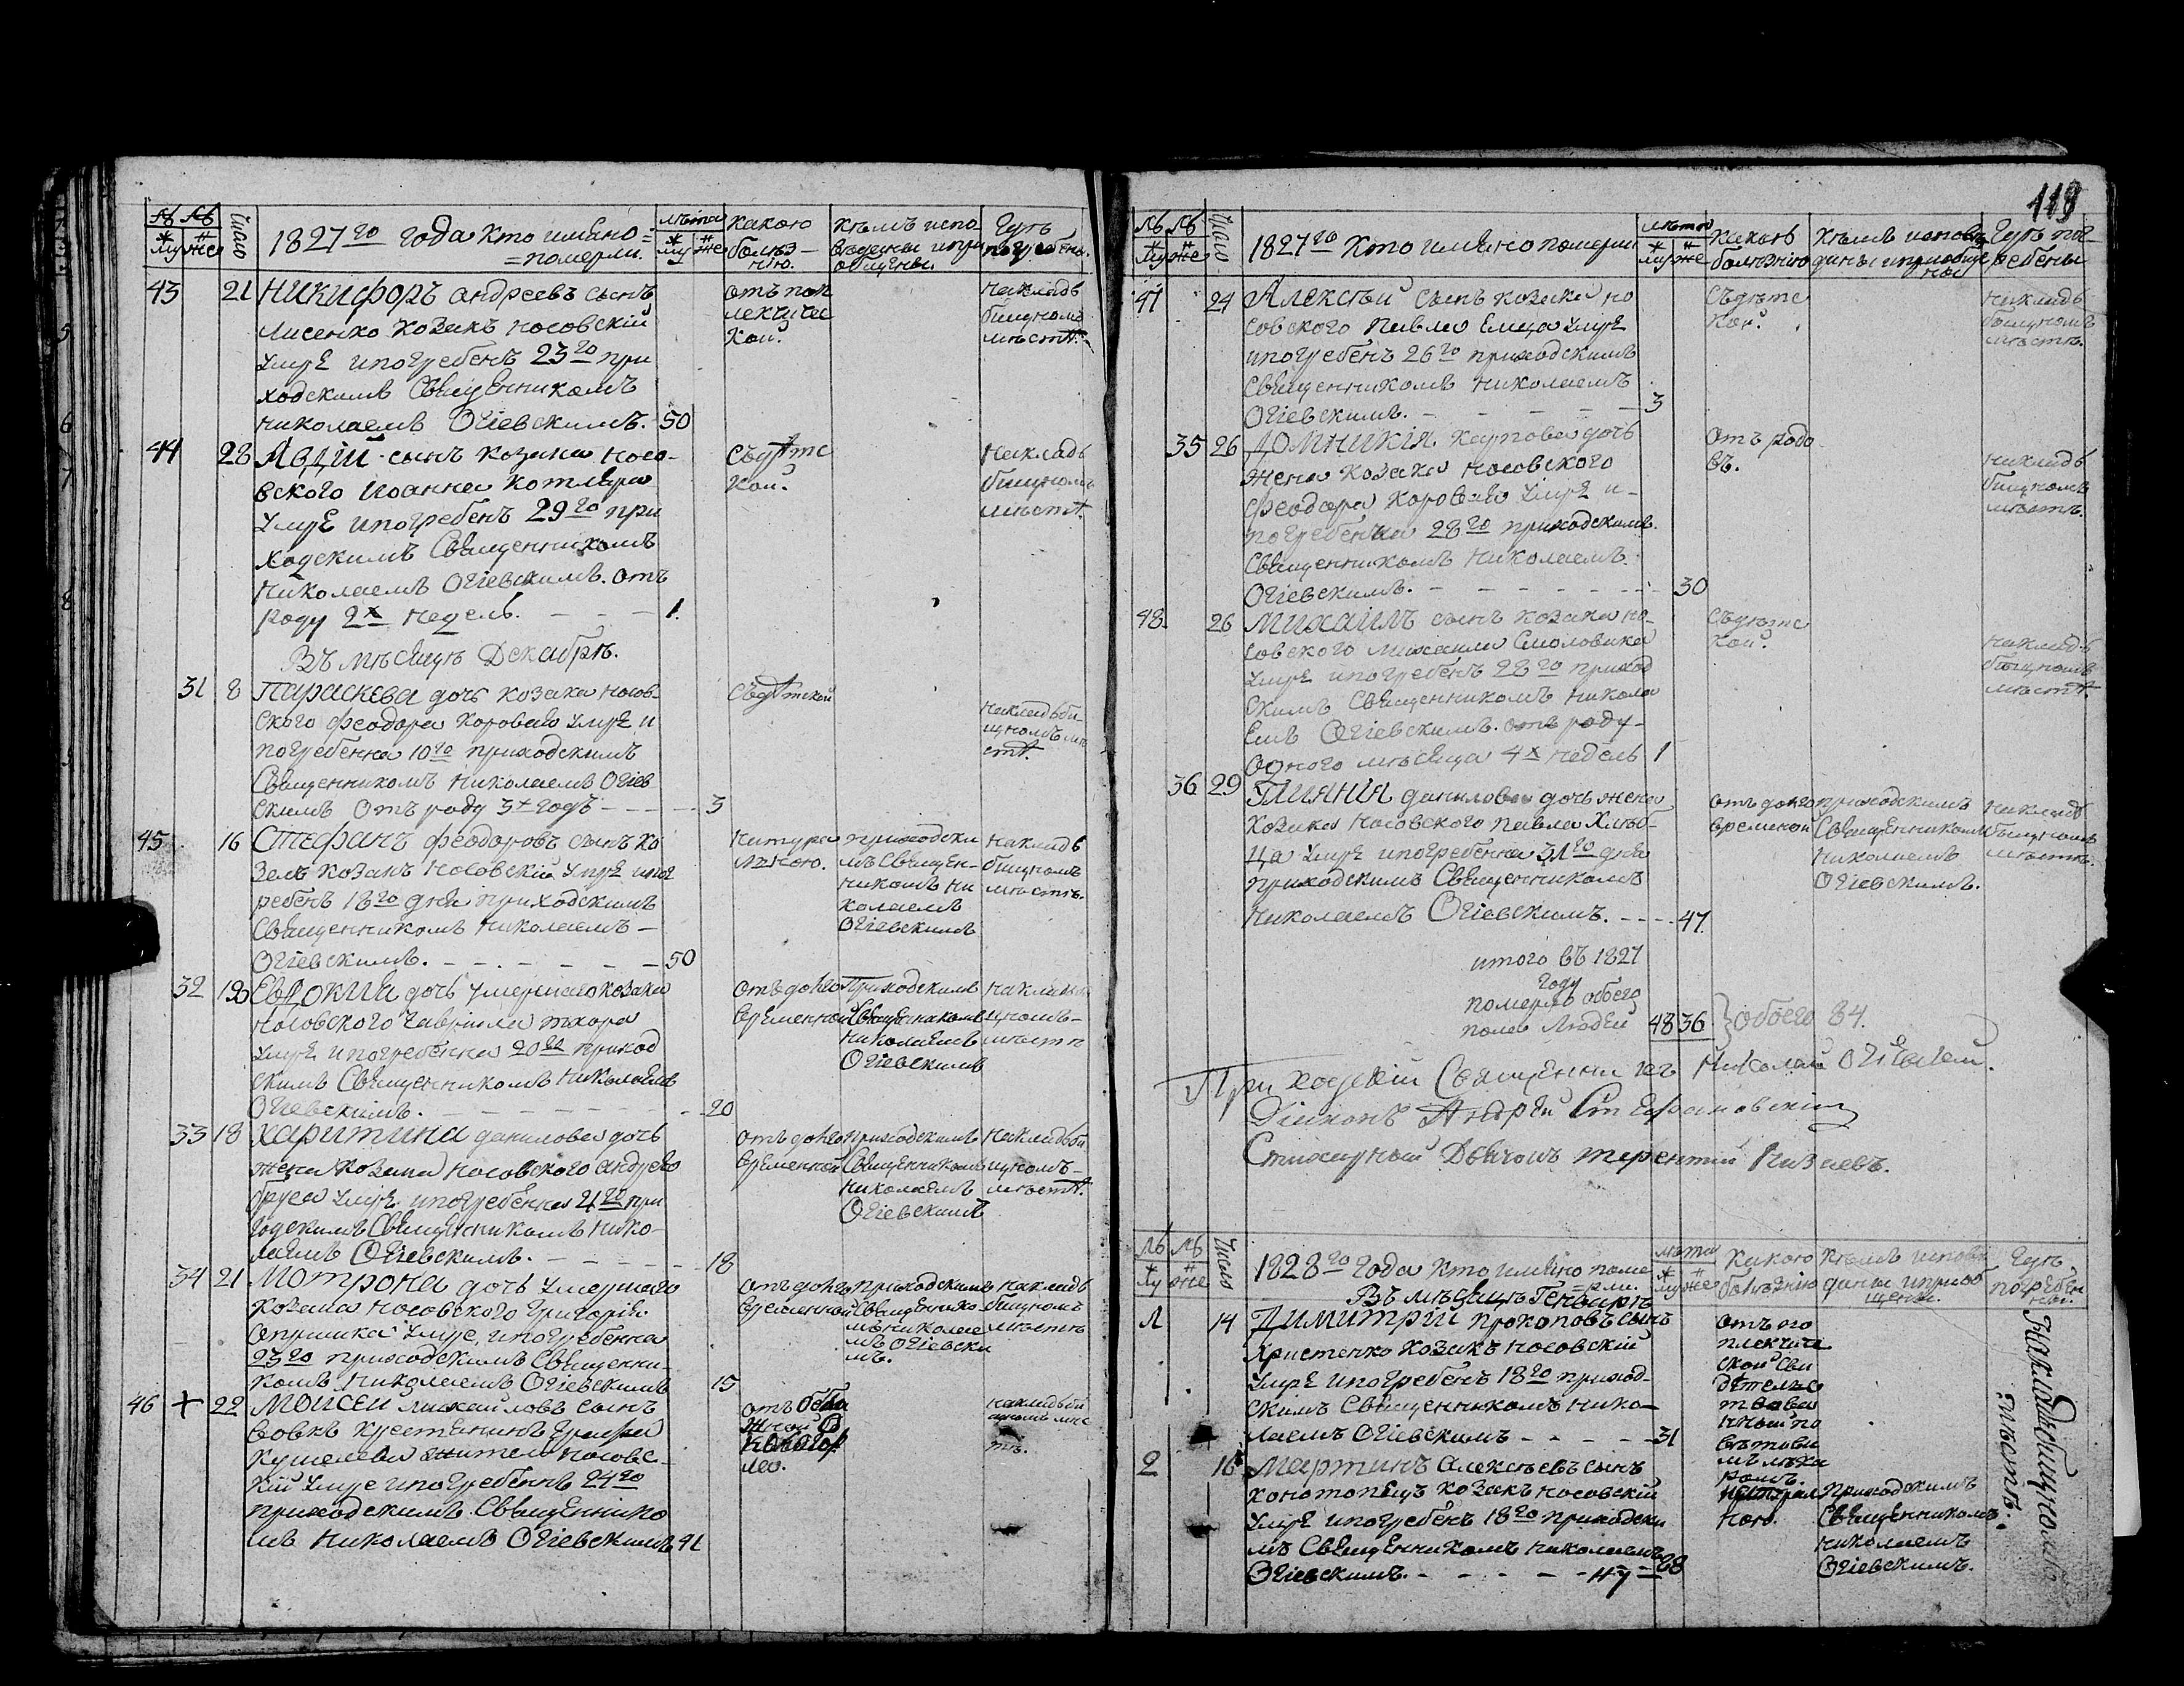 119
№ №
му же
число
1827го года кто имѣно=
=померли.
лѣта
му же
какою
болѣз-
нію.
кѣмъ испо
ведены и прі
общены.
гдѣ
погребены.
43 21 Никифоръ андреевъ сынъ
Лисенко козакъ носовскій
умре и погребенъ 23го при
ходскимъ Священникомъ
николаемъ Огіевскимъ. 50
отъ поп
лекчичес
кой.
на кладъ
бищномъ
мѣстѣ.
44 28 Авдій сынъ козака носо-
вского Иоанна Котляра
умре и погребенъ 29го при
ходскимъ Священникомъ
николаемъ Огіевскимъ. отъ
роду 2х недель. 1.
Съдѣтс
кой.
на кладъ
бищномъ
мѣстѣ.
Въ мѣсяцѣ Декабрѣ.
31 8 Параскева дочь козака носов-
ского феодора короваю умре и
погребенна 10го приходскимъ
Священникомъ николаемъ Огіев
скимъ Отъ роду 3х годъ 3
Съдѣтской
на кладъби
щномъ мѣ
стѣ.
45 16 Стефанъ феодоровъ сынъ ко
зелъ козакъ носовскій умре и пог
ребенъ 18го дня приходскимъ
Священникомъ николаемъ
Огіевскимъ. 50
натура
лною.
приходски
мъ Священ-
никомъ ни
колаемъ
Огіевскимъ
на кладъ
бищномъ
мѣстѣ.
32 Евдокия дочь умершаго козака
носовского гаврила тхора
умре и погребенна 20го приход
скимъ Священникомъ николаемъ
Огіевскимъ. 20
отъ долго
временной
Приходскимъ
Священникомъ
николаемъ
Огіевскимъ
33 18 Харитина данилова дочь
жена козака носовского андрея
умре и погребенна при
ходскимъ Священникомъ нико-
лаемъ Огіевскимъ. 18
отъ долго
временной
приходскимъ
Священникомъ
николаемъ
Огіевскимъ
на кладъби
щномъ
мѣстѣ.
34 21 Мотрона дочь умершаго
козака носовского григорія
умре, и погребенна
23го приходскимъ Священни-
комъ николаемъ Огіевскимъ 15
отъ долго
временной
приходскимъ
Священнико
мъ николае
мъ Огіевски
мъ.
на кладъ
бищномъ
мѣстѣ
46 22 Моисей михайловъ сынъ
Вовкъ крестянинъ графа
кушелева житель носовс-
кій умре и погребенъ 24го
приходскимъ Священнико
мъ николаемъ Огіевскимъ 41
№ №
му же
число
1827го кто имѣно померли
лѣта
му же
какою
болѣзнію
кѣмъ исповѣ
даны и приобще
ны
гдѣ пог-
ребены
47 24 Алексѣй сынъ козака но
совского Павла Емца умре
и погребенъ 26го приходскимъ
Священникомъ николаемъ
Огіевскимъ. 3
Съдѣтс
кой.
на кладъ
бищномъ
мѣстѣ.
35 26 Домникія карпова дочь
жена козака носовского
феодора короваю умре и
погребенна 28го приходскимъ
Священникомъ николаемъ
Огіевскимъ. 30
отъ родо
въ.
на кладъ
бищномъ
мѣстѣ.
48 26 Михаилъ сынъ козака но-
совского михаила Смоловика
умре и погребенъ 28го приход
скимъ Священникомъ никола
емъ Огіевскимъ. отъ роду
одного мѣсяца 4х недель 1
Съдѣтс
кой.
на кладъ
бищномъ
мѣстѣ.
36 29 данилова дочь жена
козака носовского павла Хлѣб-
ца умре и погребенна 31го дня
приходскимъ Священникомъ
николаемъ Огіевскимъ. 47.
отъ долго
временой
приходскимъ
Священникомъ
николаемъ
Огіевскимъ.
на кладъ
бищномъ
мѣстѣ.
итого въ 1827
году
померло обоего
пола людей 48 36 } обоего 84.
Приходскій Священникъ Николай Огіевскій.
Діяконъ Андрей Стефановскій
Стихарный Дячокъ терентій
№ №
му же
число
1828го года кто имѣно поме
=рли.
лѣта
му же
какою
болѣзнію
кѣмъ исповѣ
даны и приоб
щены.
гдѣ
погребен
ны.
Въ мѣсяцѣ Генварѣ
1 14 Димитрій прокоповъ сынъ
Христенко козакъ носовскій
умре и погребенъ 18го приход-
скимъ Священникомъ нико-
лаемъ Огіевскимъ 31
отъ по
плекчиче
ской сви
дѣтельс
твова
нной по
вѣтовы
мъ лѣка
ромъ.
2 16 Мартинъ алексѣевъ сынъ
конотопецъ козакъ носовскій
умре и погребенъ 18го приходски
мъ Священникомъ николаемъ
Огіевскимъ.
натурал
ною.
приходскимъ
Священникомъ
николаемъ
Огіевскимъ.
На кладъбищномъ
мѣстѣ.